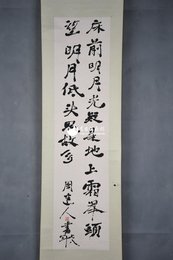 床前明月光疑是地上霜举头
望明月低头思故乡
周建人书